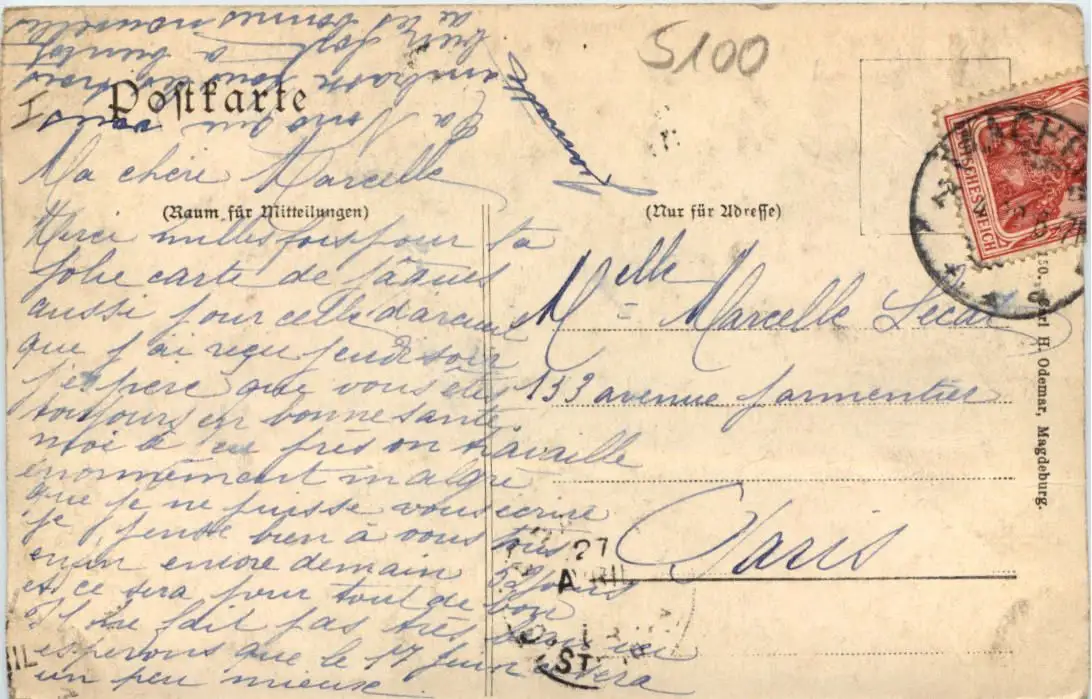 5100
Postkarte
I
(Raum für Mitteilungen)
(Nur für Adresse)
DEUTSCHES REICH
Ma chère Marcelle
Merci milles fois pour ta
jolie carte de pâques
aussi pour celle d'arcueil
que j'ai reçu jeudi soir
j'espère que vous êtes
toujours en bonne santé
moi à peu près on travaille
énormément malgré
que je ne puisse vous écrire
je pense bien à vous tous
enfin encore demain
et ce sera pour tout de bon
Il ne fait pas très
esperons que le 17 Juin sera
un peu mieux
vous
embrasse tous les trois
bien fort à bientôt
de tes bonnes nouvelles
Melle Marcelle Lecat
133 avenue parmentier
Paris
27
AVRIL
150. Carl H. Odemar, Magdeburg.